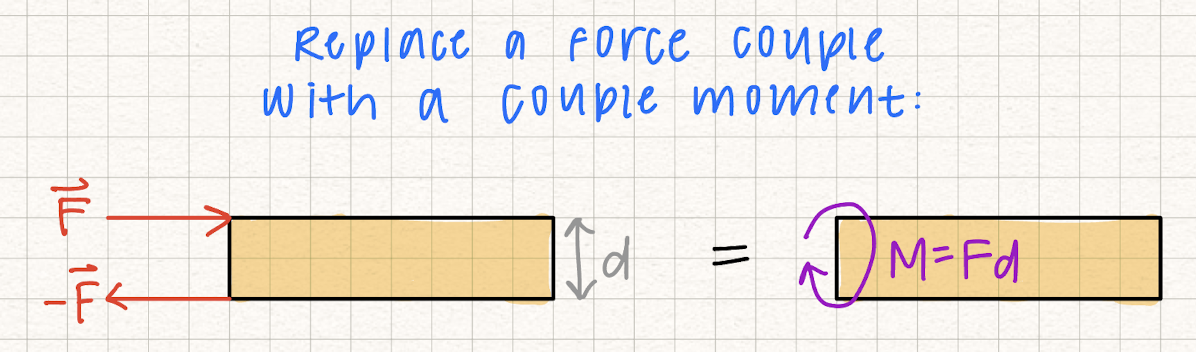 Replace a force couple
with a couple moment:
F⃗
-F⃗
d
=
M=Fd